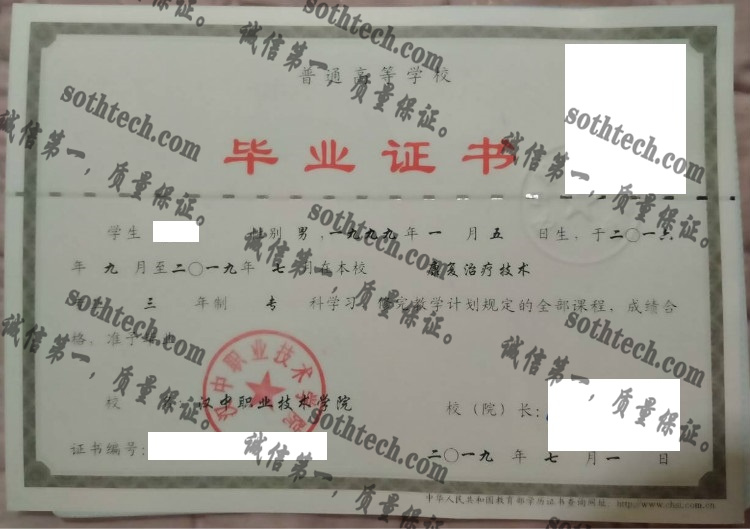 普通高等学校
毕业证书
学生 性别 男，一九九九年 一 月 五 日生，于二〇一六
年 九 月至二〇一九年 七 月在本校 康复治疗技术
三 年制 专 科学习，修完教学计划规定的全部课程，成绩合
格，准予毕业
校 汉中职业技术学院 校（院）长：
证书编号：
二〇一九 年 七 月 一 日
中华人民共和国教育部学历证书查询网址：http://www.chsi.com.cn
汉中职业技术学院
sothtech.com
诚信第一，质量保证。
sothtech.com
诚信第一，质量保证。
sothtech.com
诚信第一，质量保证。
sothtech.com
诚信第一，质量保证。
sothtech.com
诚信第一，质量保证。
sothtech.com
诚信第一，质量保证。
sothtech.com
诚信第一，质量保证。
sothtech.com
诚信第一，质量保证。